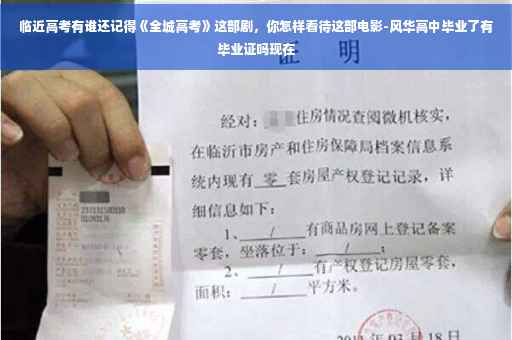 临近高考有谁还记得《全城高考》这部剧，你怎样看待这部电影-风华高中毕业了有
毕业证吗现在
证 明
经对：住房情况查阅微机核实，
在临沂市房产和住房保障局档案信息系
统内现有 零 套房屋产权登记记录，详
细信息如下：
1、 / 有商品房网上登记备案
零套，坐落位于： / ；
2、 / 有产权登记房屋零套，
面积： / 平方米。